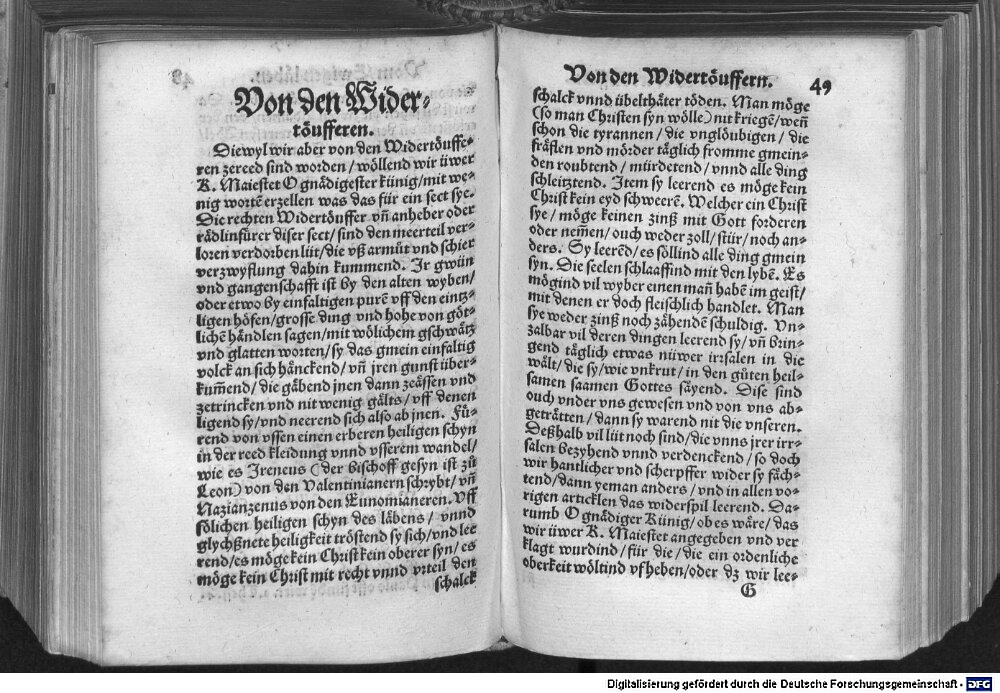 Von den Wider-
töufferen.
Diewyl wir aber von den Widertöuffe-
ren zereed sind worden/ wöllend wir üwer
K. Maiestet O gnädigester künig/ mit we-
nig wortē erzellen was das für ein sect sye.
Die rechten Widertöuffer vñ anheber oder
rädlinfürer diser sect/ sind den meerteil ver-
loren verdorben lüt/ die vß armůt vnd schier
verzwyflung dahin kummend. Ir gwün
vnd gangenschafft ist by den alten wyben/
oder etwo by einfaltigen purē vff den eintz-
ligen höfen/ grosse ding vnd hohe von göt-
lichē händlen sagen/ mit wölichem gschwätz
vnd glatten worten/ sy das gmein einfaltig
volck an sich hänckend/ vñ jren gunst über-
kum̄end/ die gäbend jnen dann zeässen vnd
zetrincken vnd nit wenig gälts/ vff denen
ligend sy/ vnd neerend sich also ab jnen. Fü-
rend von vssen einen erberen heiligen schyn
in der reed kleidung vnnd vsserem wandel/
wie es Ireneus (der bischoff gesyn ist zů
Leon) von den Valentinianern schrybt/ vñ
Nazianzenus von den Eunomianeren. Vff
sölichen heiligen schyn des läbens/ vnnd
glychßnete heiligkeit tröstend sy sich/ vnd lee
rend/ es möge kein Christ kein oberer syn/ es
möge kein Christ mit recht vnnd vrteil den
schalck
Von den Widertöuffern. 49
schalck vnnd übelthäter töden. Man möge
(so man Christen syn wölle) nit kriegē/ weñ
schon die tyrannen/ die vnglöubigen/ die
fräflen vnd mörder täglich fromme gmein-
den roubtend/ mürdetend/ vnnd alle ding
schleitztend. Item sy leerend es möge kein
Christ kein eyd schweerē. Welcher ein Christ
sye/ möge keinen zinß mit Gott forderen
oder nem̄en/ ouch weder zoll/ stür/ noch an-
ders. Sy leerēd/ es söllind alle ding gmein
syn. Die seelen schlaaffind mit den lybē. Es
mögind vil wyber einen mañ habē im geist/
mit denen er doch fleischlich handlet. Man
sye weder zinß noch zähendē schuldig. Vn-
zalbar vil deren dingen leerend sy/ vñ brin-
gend täglich etwas nüwer irrsalen in die
wält/ die sy/ wie vnkrut/ in den gůten heil-
samen saamen Gottes säyend. Dise sind
ouch vnder vns gewesen vnd von vns ab-
geträtten/ dann sy warend nit die vnseren.
Deßhalb vil lüt noch sind/ die vnns jrer irr-
salen bezyhend vnnd verdenckend/ so doch
wir hantlicher vnd scherpffer wider sy fäch-
tend/ dann yeman anders/ vnd in allen vo-
rigen articklen das widerspil leerend. Da-
rumb O gnädiger Künig/ ob es wäre/ das
wir üwer K. Maiestet angegeben vnd ver
klagt wurdind/ für die/ die ein ordenliche
oberkeit wöltind vfheben/ oder dz wir lee-
G
Digitalisierung gefördert durch die Deutsche Forschungsgemeinschaft - DFG